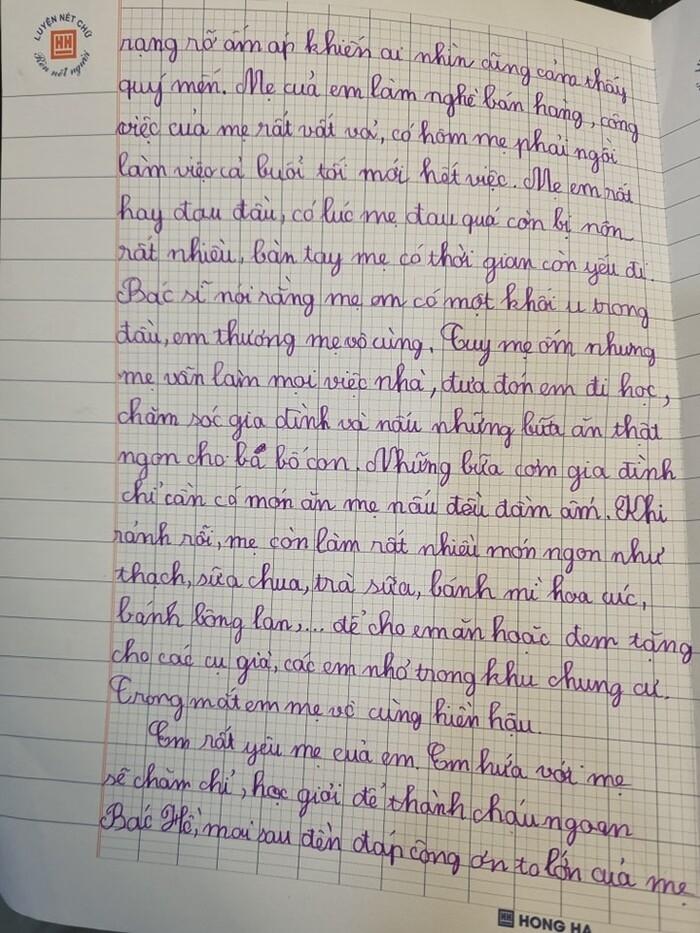 LUYỆN NÉT CHỮ
Rèn nết người
rạng rỡ ấm áp khiến ai nhìn cũng cảm thấy
quý mến. Mẹ của em làm nghề bán hàng, công
việc của mẹ rất vất vả, có hôm mẹ phải ngồi
làm việc cả buổi tối mới hết việc. Mẹ em rất
hay đau đầu, có lúc mẹ đau quá còn bị nôn
rất nhiều, bàn tay mẹ có thời gian còn yếu đi.
Bác sĩ nói rằng mẹ em có một khối u trong
đầu, em thương mẹ vô cùng. Tuy mẹ ốm nhưng
mẹ vẫn làm mọi việc nhà, đưa đón em đi học,
chăm sóc gia đình và nấu những bữa ăn thật
ngon cho ba bố con. Những bữa cơm gia đình
chỉ cần có món ăn mẹ nấu đều đầm ấm. Khi
rảnh rỗi, mẹ còn làm rất nhiều món ngon như
thạch, sữa chua, trà sữa, bánh mì hoa cúc,
bánh bông lan,... để cho em ăn hoặc đem tặng
cho các cụ già, các em nhỏ trong khu chung cư.
Trong mắt em mẹ vô cùng hiền hậu.
Em rất yêu mẹ của em. Em hứa với mẹ
sẽ chăm chỉ, học giỏi để thành cháu ngoan
Bác Hồ, mai sau đền đáp công ơn to lớn của mẹ
HONG HA